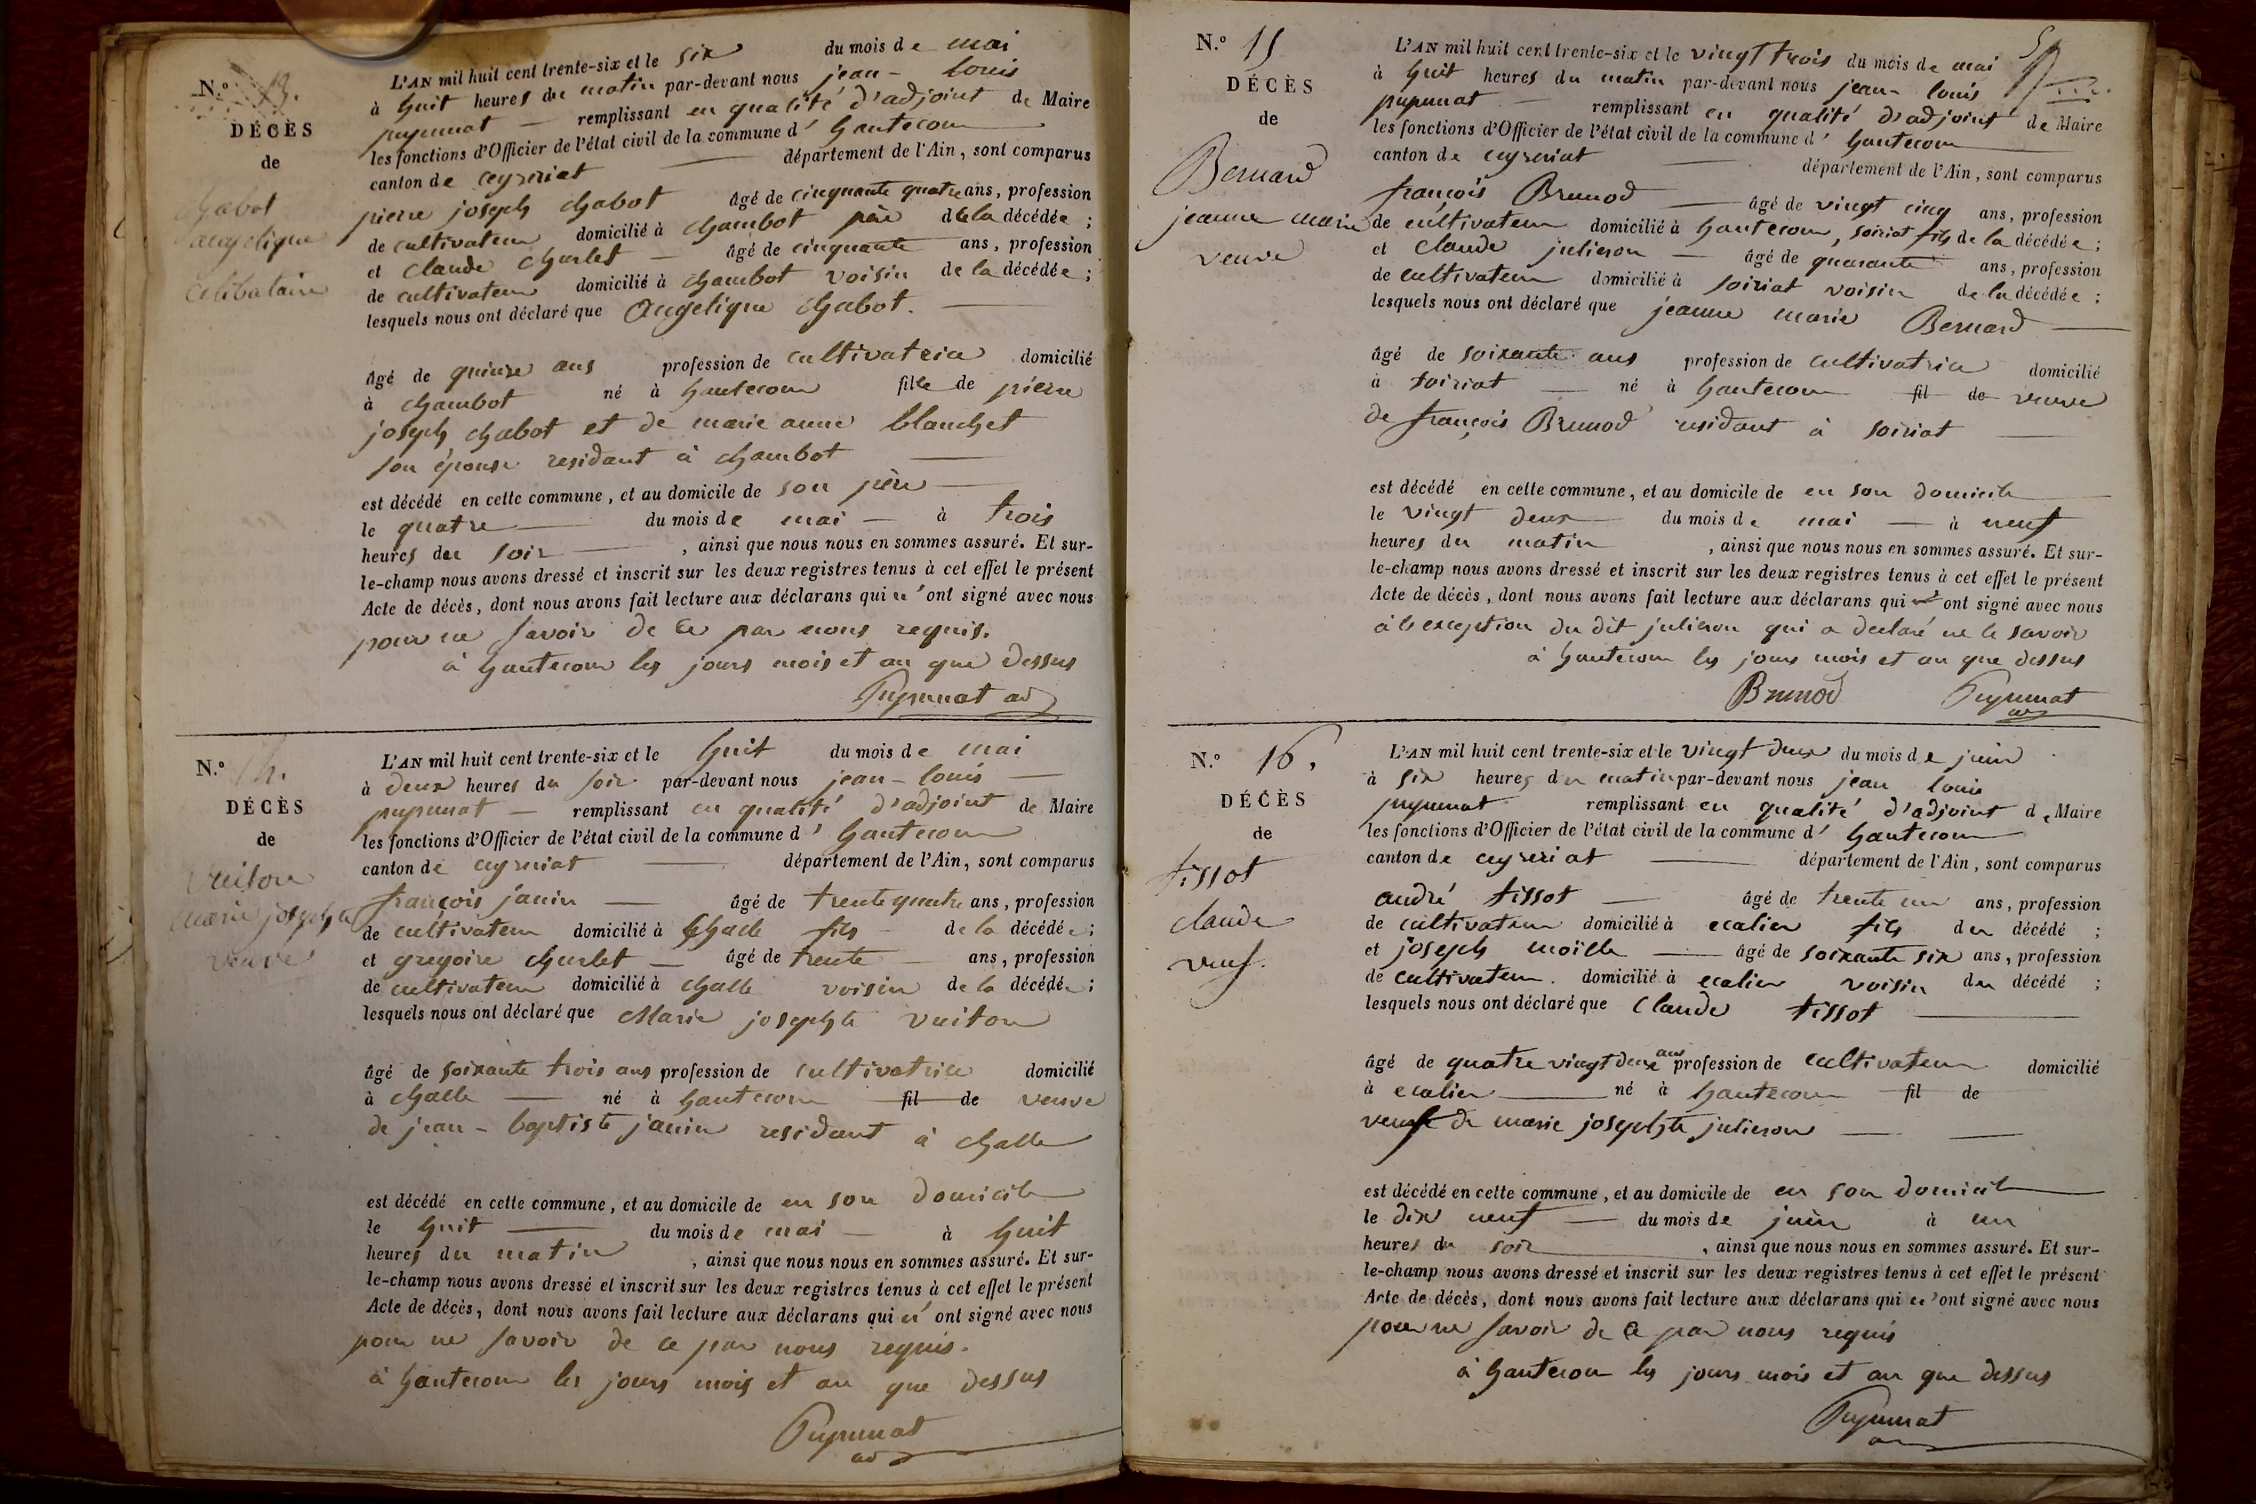 N.º 13.
DÉCÈS
de
Chabot
angelique
celibataire
L'AN mil huit cent trente-six et le six du mois de mai
à huit heures du matin par-devant nous jean-louis
pupunat — remplissant en qualité d'adjoint de Maire
les fonctions d'Officier de l'état civil de la commune d'hautecour
canton de ceyzeriat — département de l'Ain, sont comparus
pierre joseph chabot âgé de cinquante quatre ans, profession
de cultivateur domicilié à chambot père de la décédée ;
et claude charlet — âgé de cinquante ans, profession
de cultivateur domicilié à chambot voisin de la décédée ;
lesquels nous ont déclaré que Angelique chabot. —
âgé de quinze ans profession de cultivatrice domicilié
à chambot né à hautecour fille de pierre
joseph chabot et de marie anne blanchet
son épouse residant à chambot —
est décédé en cette commune, et au domicile de son père —
le quatre — du mois de mai — à trois
heures du soir —, ainsi que nous nous en sommes assuré. Et sur-
le-champ nous avons dressé et inscrit sur les deux registres tenus à cet effet le présent
Acte de décès, dont nous avons fait lecture aux déclarans qui n'ont signé avec nous
pour ne savoir de ce par nous requis.
à hautecour les jours mois et an que dessus
Pupunat ad
N.º 14.
DÉCÈS
de
Vuiton
marie josephte
veuve
L'AN mil huit cent trente-six et le huit du mois de mai
à deux heures du soir par-devant nous jean-louis —
pupunat — remplissant en qualité d'adjoint de Maire
les fonctions d'Officier de l'état civil de la commune d'hautecour
canton de ceyzeriat — département de l'Ain, sont comparus
françois janin — âgé de trente quatre ans, profession
de cultivateur domicilié à Challe fils de la décédée ;
et gregoire charlet — âgé de trente — ans, profession
de cultivateur domicilié à challe voisin de la décédée ;
lesquels nous ont déclaré que Marie josephte vuiton
âgé de soixante trois ans profession de cultivatrice domicilié
à challe — né à hautecour fil de veuve
de jean-baptiste janin residant à challe
est décédé en cette commune, et au domicile de en son domicile
le huit — du mois de mai — à huit
heures du matin, ainsi que nous nous en sommes assuré. Et sur-
le-champ nous avons dressé et inscrit sur les deux registres tenus à cet effet le présent
Acte de décès, dont nous avons fait lecture aux déclarans qui n'ont signé avec nous
pour ne savoir de ce par nous requis.
à hautecour les jours mois et an que dessus
Pupunat
ad
N.º 15
DÉCÈS
de
Bernard
jeanne marie
veuve
L'AN mil huit cent trente-six et le vingt trois du mois de mai
à huit heures du matin par-devant nous jean-louis
pupunat — remplissant en qualité d'adjoint de Maire
les fonctions d'Officier de l'état civil de la commune d'hautecour
canton de ceyzeriat — département de l'Ain, sont comparus
françois Brunod — âgé de vingt cinq ans, profession
de cultivateur domicilié à hautecour, soiriat fils de la décédée ;
et claude julieron — âgé de quarante ans, profession
de cultivateur domicilié à soiriat voisin de la décédée ;
lesquels nous ont déclaré que jeanne marie Bernard —
âgé de soixante ans profession de cultivatrice domicilié
à soiriat — né à hautecour fil de veuve
de françois Brunod residant à soiriat —
est décédé en cette commune, et au domicile de en son domicile
le vingt deux — du mois de mai — à neuf
heures du matin, ainsi que nous nous en sommes assuré. Et sur-
le-champ nous avons dressé et inscrit sur les deux registres tenus à cet effet le présent
Acte de décès, dont nous avons fait lecture aux déclarans qui ont signé avec nous
à le exception du dit julieron qui a declaré ne le savoir
à hautecour les jours mois et an que dessus
Brunod Pupunat
ad
N.º 16.
DÉCÈS
de
tissot
claude
veuf.
L'AN mil huit cent trente-six et le vingt deux du mois de juin
à six heures du matin par-devant nous jean louis
pupunat remplissant en qualité d'adjoint de Maire
les fonctions d'Officier de l'état civil de la commune d'hautecour
canton de ceyzeriat — département de l'Ain, sont comparus
andré tissot — âgé de trente un ans, profession
de cultivateur domicilié à ecalier fils du décédé ;
et joseph moille — âgé de soixante six ans, profession
de cultivateur. domicilié à ecalier voisin du décédé ;
lesquels nous ont déclaré que Claude tissot —
âgé de quatre vingt deux ans profession de cultivateur domicilié
à ecalier — né à hautecour fil de
veuf de marie josephte julieron — —
est décédé en cette commune, et au domicile de en son domicile
le dix neuf — du mois de juin à un
heures du soir, ainsi que nous nous en sommes assuré. Et sur-
le-champ nous avons dressé et inscrit sur les deux registres tenus à cet effet le présent
Acte de décès, dont nous avons fait lecture aux déclarans qui n'ont signé avec nous
pour ne savoir de ce par nous requis
à hautecour les jours mois et an que dessus
Pupunat
ad